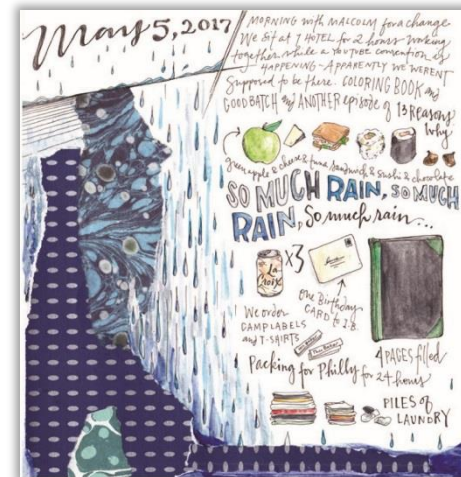 May 5, 2017
MORNING with MALCOLM for a change
We sit at 7 HOTEL for 2 hours working
together while a YOUTUBE convention is
HAPPENING - APPARENTLY WE WERENT
Supposed to be there. COLORING BOOK and
GOOD BATCH and ANOTHER episode of 13 Reasons
Why
green apple & cheese & tuna sandwich & sushi & chocolate
SO MUCH RAIN, SO MUCH
RAIN, So much rain...
La Croix
X3
One Birthday
CARD to I.B.
We order
CAMP LABELS
and T-SHIRTS
4 PAGES filled
Packing for Philly for 24 hours
PILES of
LAUNDRY